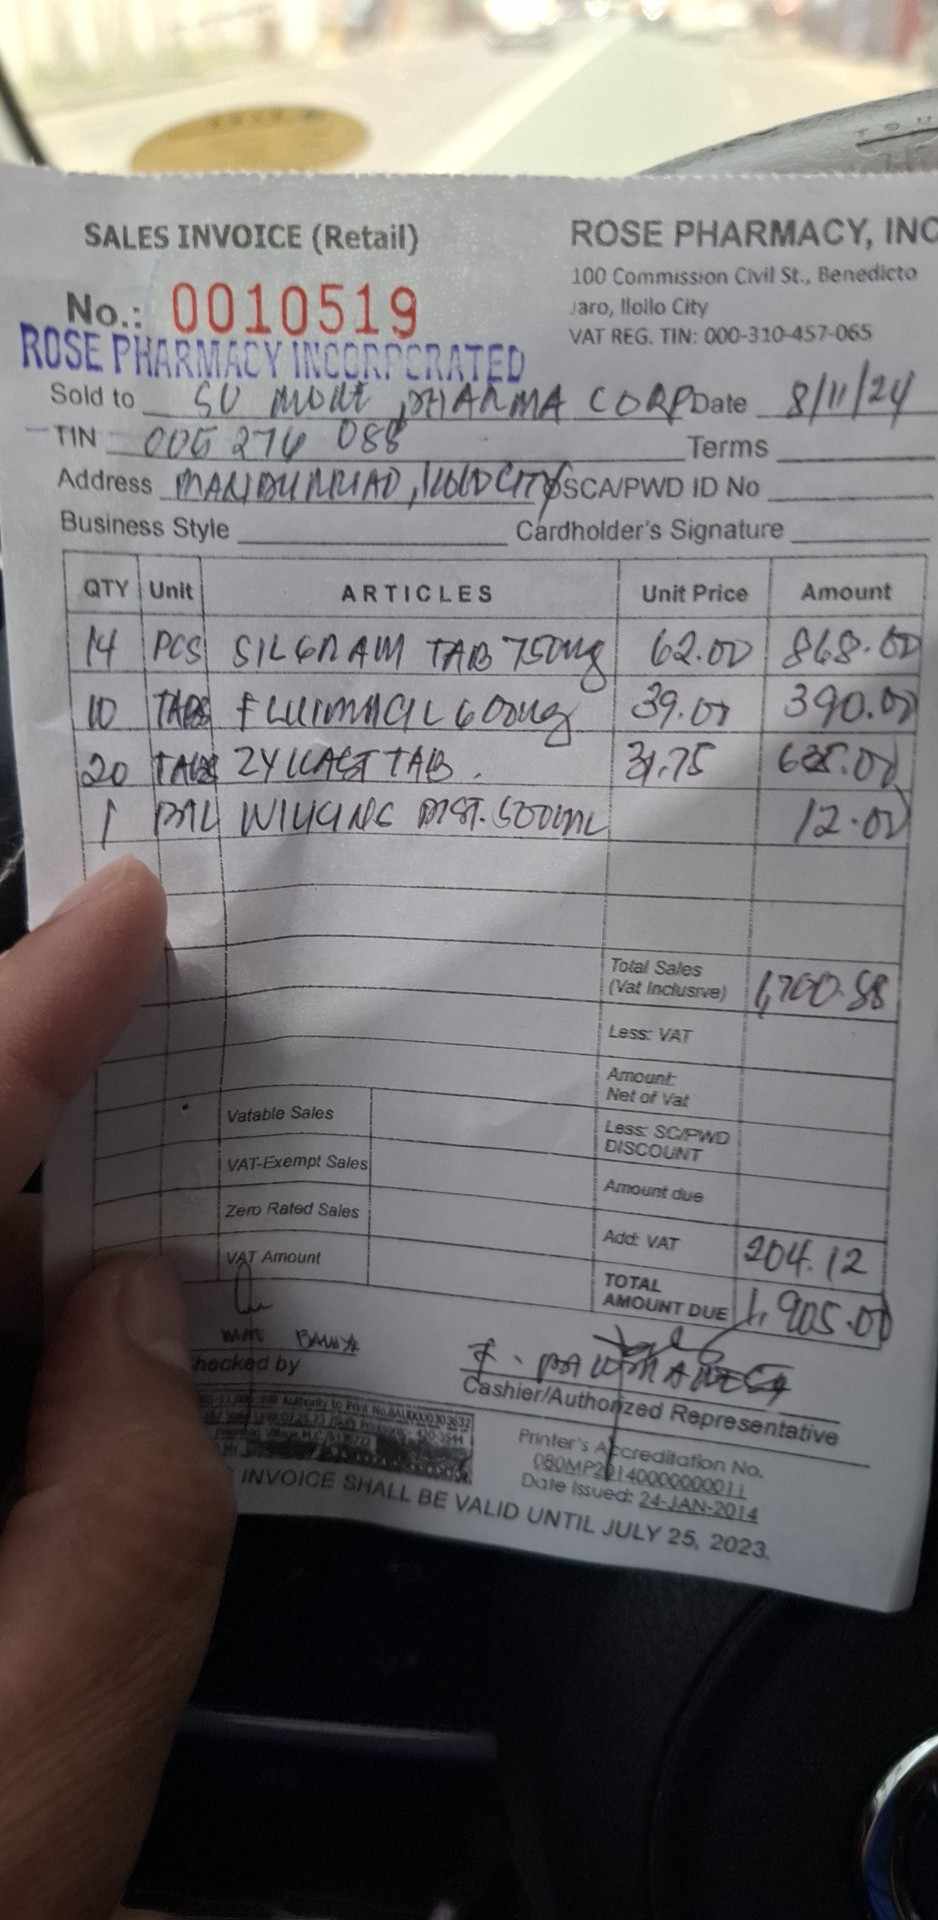 SALES INVOICE (Retail)
ROSE PHARMACY, INC
100 Commission Civil St., Benedicto
Jaro, Iloilo City
VAT REG. TIN: 000-310-457-065
No.: 0010519
ROSE PHARMACY INCORPORATED
Sold to SU PHARMA CORP Date 8/11/24
TIN 005 276 088 Terms
Address MANDURRIAO, ILOILO CITY OSCA/PWD ID No
Business Style Cardholder's Signature
QTY Unit ARTICLES Unit Price Amount
14 PCS SILGRAM TAB 750mg 62.00 868.00
10 TABS FLUIMUCIL 600mg 39.00 390.00
20 TABS ZYKAST TAB. 31.75 635.00
1 BTL WILKINS DIST. 500mL 12.00
Total Sales
(Vat Inclusive) 1,700.88
Less: VAT
Amount:
Net of Vat
Vatable Sales
Less: SC/PWD
DISCOUNT
VAT-Exempt Sales
Amount due
Zero Rated Sales
Add: VAT 204.12
VAT Amount
TOTAL
AMOUNT DUE 1,905.00
hecked by
Cashier/Authorized Representative
Printer's Accreditation No.
080MP20140000000011
Date Issued: 24-JAN-2014
INVOICE SHALL BE VALID UNTIL JULY 25, 2023.